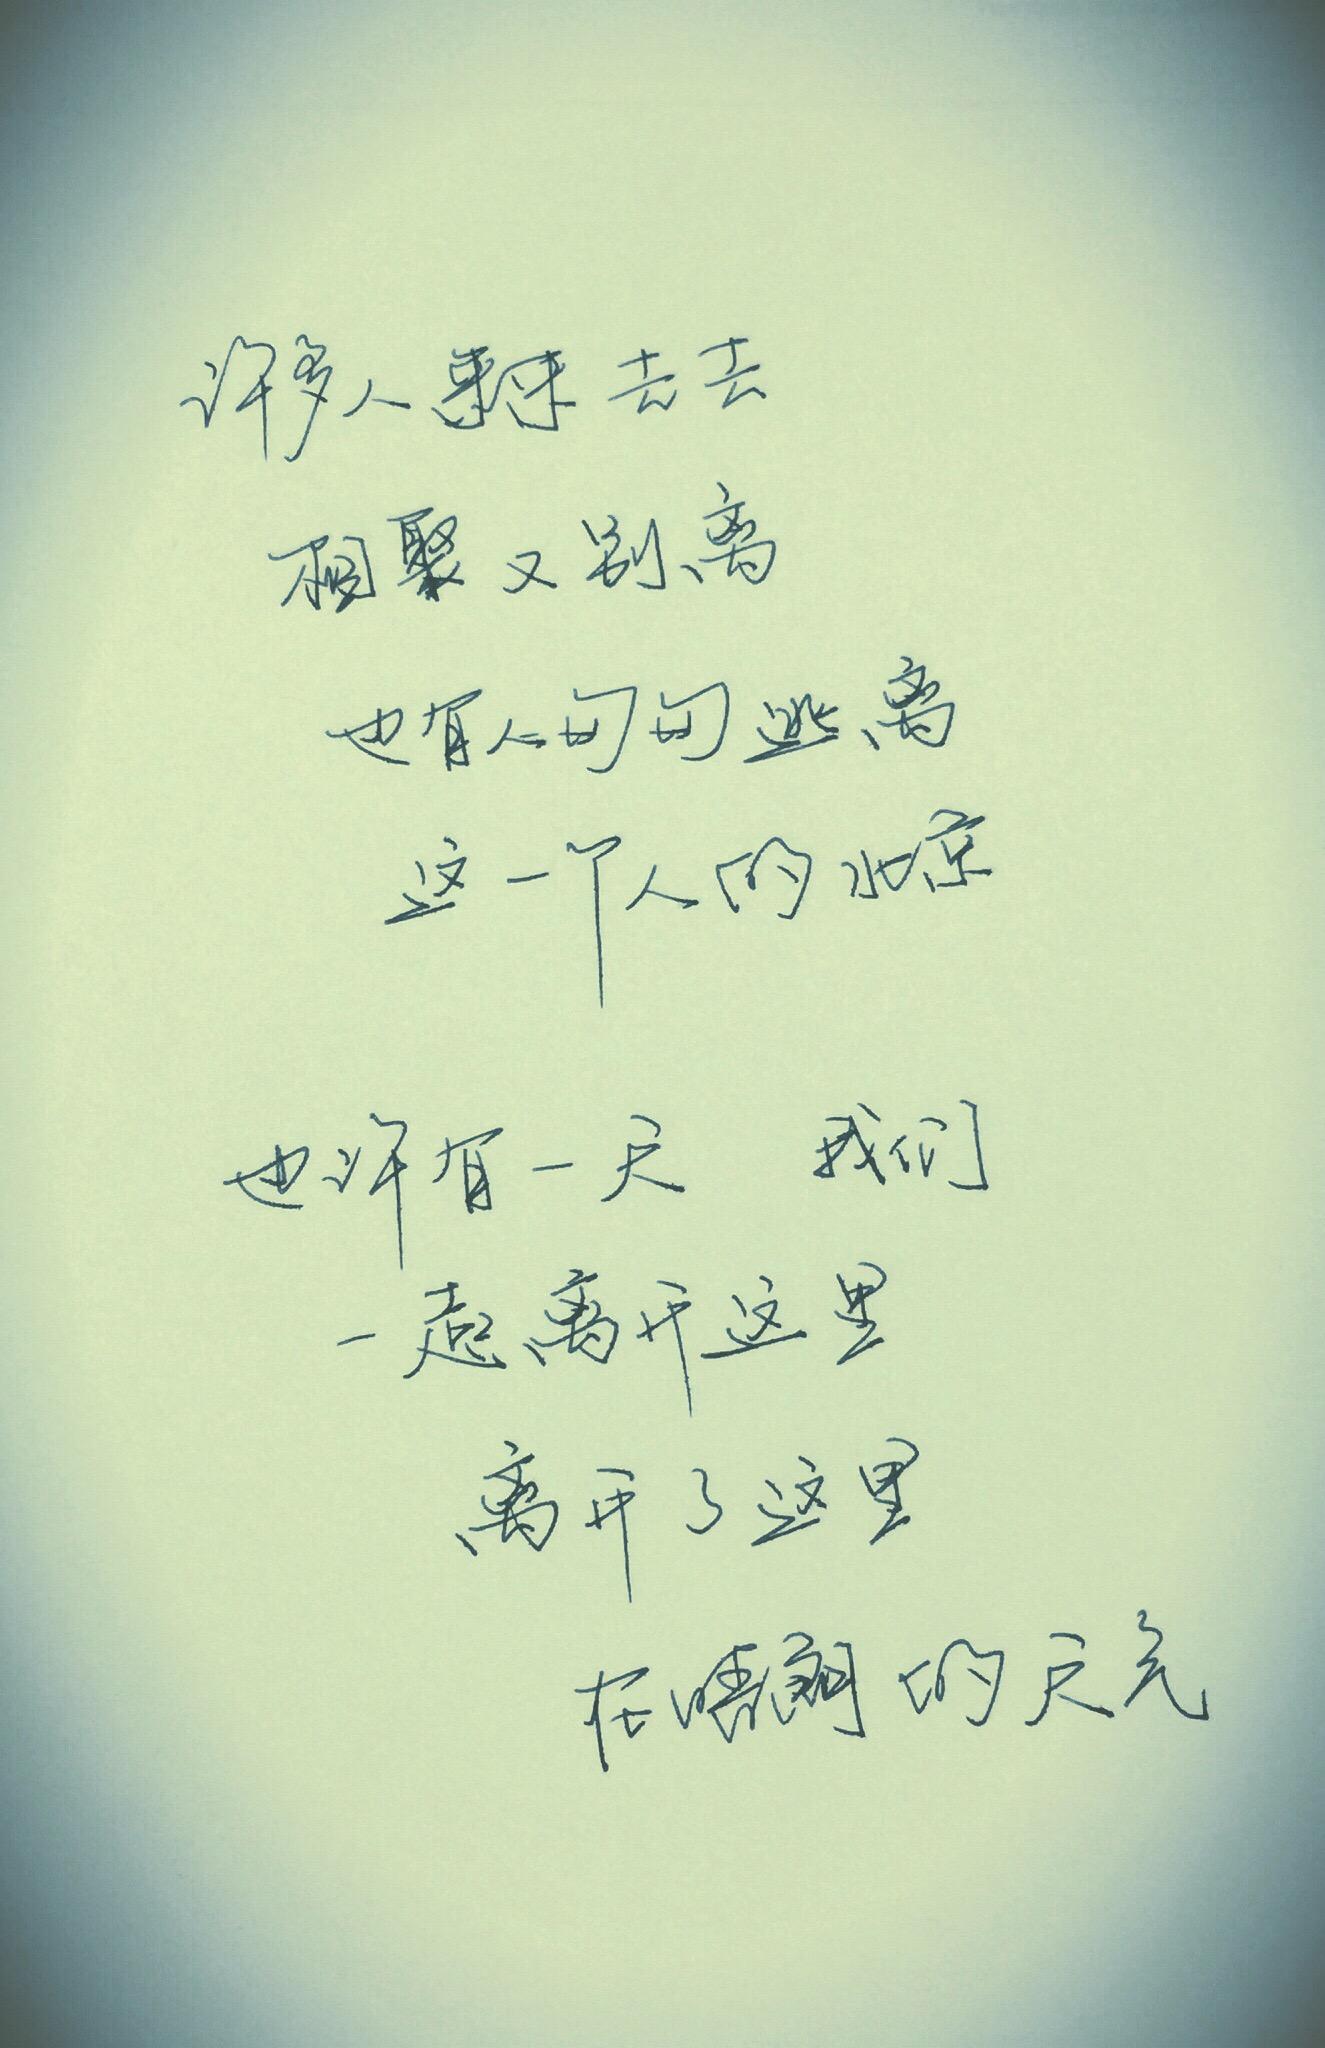 许多人来来去去
相聚又别离
也有人匆匆逃离
这一个人的北京
也许有一天 我们
一起离开这里
离开了这里
在晴朗的天气